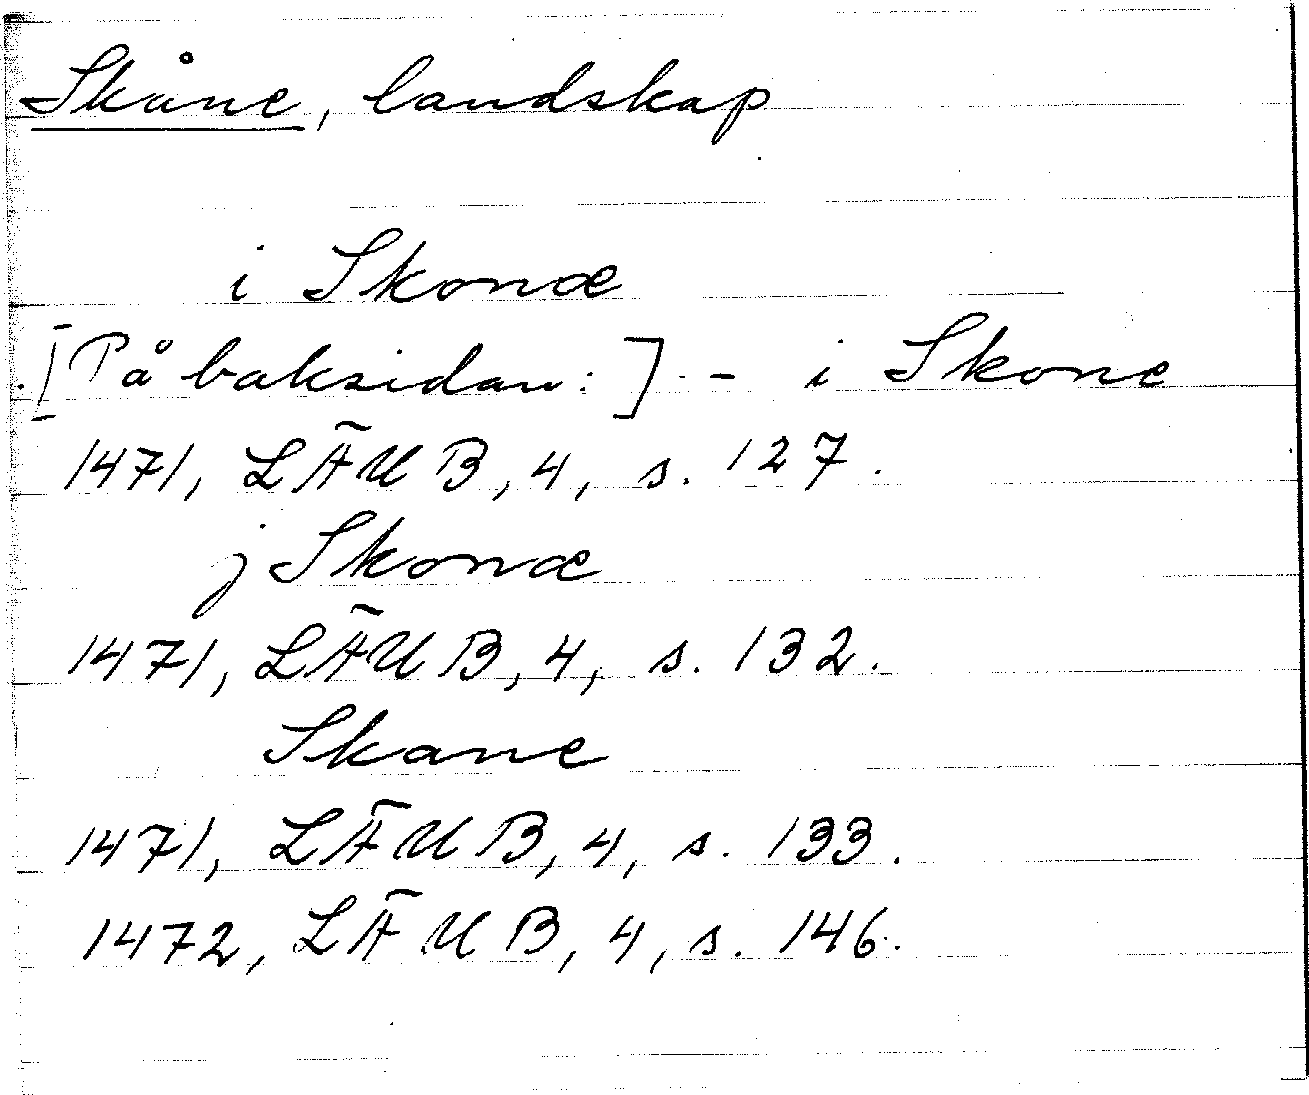 Skåne, landskap
i Skonæ
[På baksidan:] - i Skone
1471, LÄUB, 4, s. 127.
j Skonæ
1471, LÄUB, 4, s. 132.
Skane
1471, LÄUB, 4, s. 133.
1472, LÄUB, 4, s. 146.